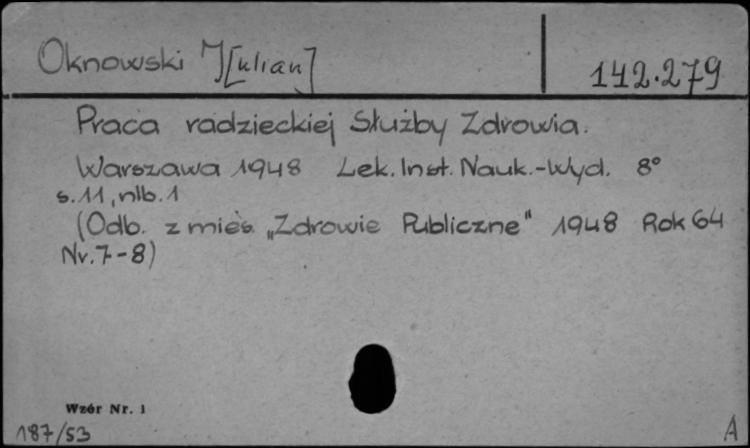 Oknowski J[ulian]
142.279
Praca radzieckiej Służby Zdrowia.
Warszawa 1948 Lek. Inst. Nauk.-Wyd. 8°
s. 11, nlb. 1
(Odb. z mies. „Zdrowie Publiczne" 1948 Rok 64
Nr. 7-8)
Wzór Nr. 1
187/53
A